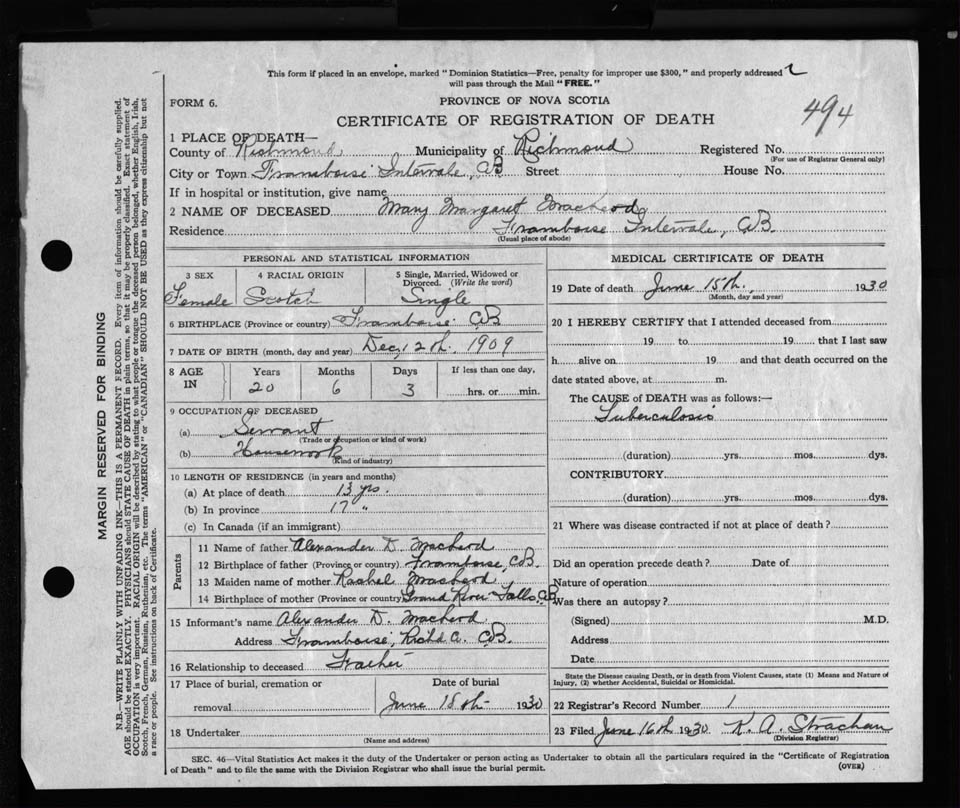 This form if placed in an envelope, marked "Dominion Statistics—Free, penalty for improper use $300," and properly addressed
will pass through the Mail "FREE."
FORM 6.
PROVINCE OF NOVA SCOTIA
494
CERTIFICATE OF REGISTRATION OF DEATH
1 PLACE OF DEATH—
County of Richmond Municipality of Richmond Registered No.
(For use of Registrar General only)
City or Town Framboise Intervale, CB Street House No.
If in hospital or institution, give name
2 NAME OF DECEASED Mary Margaret MacLeod
Residence Framboise Intervale, CB.
(Usual place of abode)
PERSONAL AND STATISTICAL INFORMATION
3 SEX 4 RACIAL ORIGIN 5 Single, Married, Widowed or
Divorced. (Write the word)
Female Scotch Single
6 BIRTHPLACE (Province or country) Framboise CB
7 DATE OF BIRTH (month, day and year) Dec, 12th, 1909
8 AGE
IN Years Months Days If less than one day,
20 6 3 hrs. or min.
9 OCCUPATION OF DECEASED
(a) Servant
(Trade or occupation or kind of work)
(b) Housework
(Kind of industry)
10 LENGTH OF RESIDENCE (in years and months)
(a) At place of death 13 yrs.
(b) In province 17 "
(c) In Canada (if an immigrant)
Parents
11 Name of father Alexander D. MacLeod
12 Birthplace of father (Province or country) Framboise, CB.
13 Maiden name of mother Rachel MacLeod
14 Birthplace of mother (Province or country) Grand River Falls, CB
15 Informant's name Alexander D. MacLeod
Address Framboise, Rich'd C. CB.
16 Relationship to deceased Father
17 Place of burial, cremation or Date of burial
removal June 18th 1930
18 Undertaker
(Name and address)
MEDICAL CERTIFICATE OF DEATH
19 Date of death June 15th, 1930
(Month, day and year)
20 I HEREBY CERTIFY that I attended deceased from
19 to 19 that I last saw
h alive on 19 and that death occurred on the
date stated above, at m.
The CAUSE of DEATH was as follows:—
Tuberculosis
(duration) yrs. mos. dys.
CONTRIBUTORY
(duration) yrs. mos. dys.
21 Where was disease contracted if not at place of death?
Did an operation precede death? Date of
Nature of operation
Was there an autopsy?
(Signed) M.D.
Address
Date
State the Disease causing Death, or in death from Violent Causes, state (1) Means and Nature of
Injury, (2) whether Accidental, Suicidal or Homicidal.
22 Registrar's Record Number 1
23 Filed June 16th 1930 K. A. Strachan
(Division Registrar)
SEC. 46—Vital Statistics Act makes it the duty of the Undertaker or person acting as Undertaker to obtain all the particulars required in the "Certificate of Registration
of Death" and to file the same with the Division Registrar who shall issue the burial permit.
(OVER)
MARGIN RESERVED FOR BINDING
N.B.—WRITE PLAINLY WITH UNFADING INK—THIS IS A PERMANENT RECORD. Every item of information should be carefully supplied.
AGE should be stated EXACTLY. PHYSICIANS should STATE CAUSE OF DEATH in plain terms, so that it may be properly classified. Exact statement of
OCCUPATION is very important. RACIAL ORIGIN will be described by stating to what people or tongue the deceased person belonged, whether English, Irish,
Scotch, French, German, Russian, Ruthenian, etc. The terms "AMERICAN" or "CANADIAN" SHOULD NOT BE USED as they express citizenship but not
a race or people. See instructions on back of Certificate.